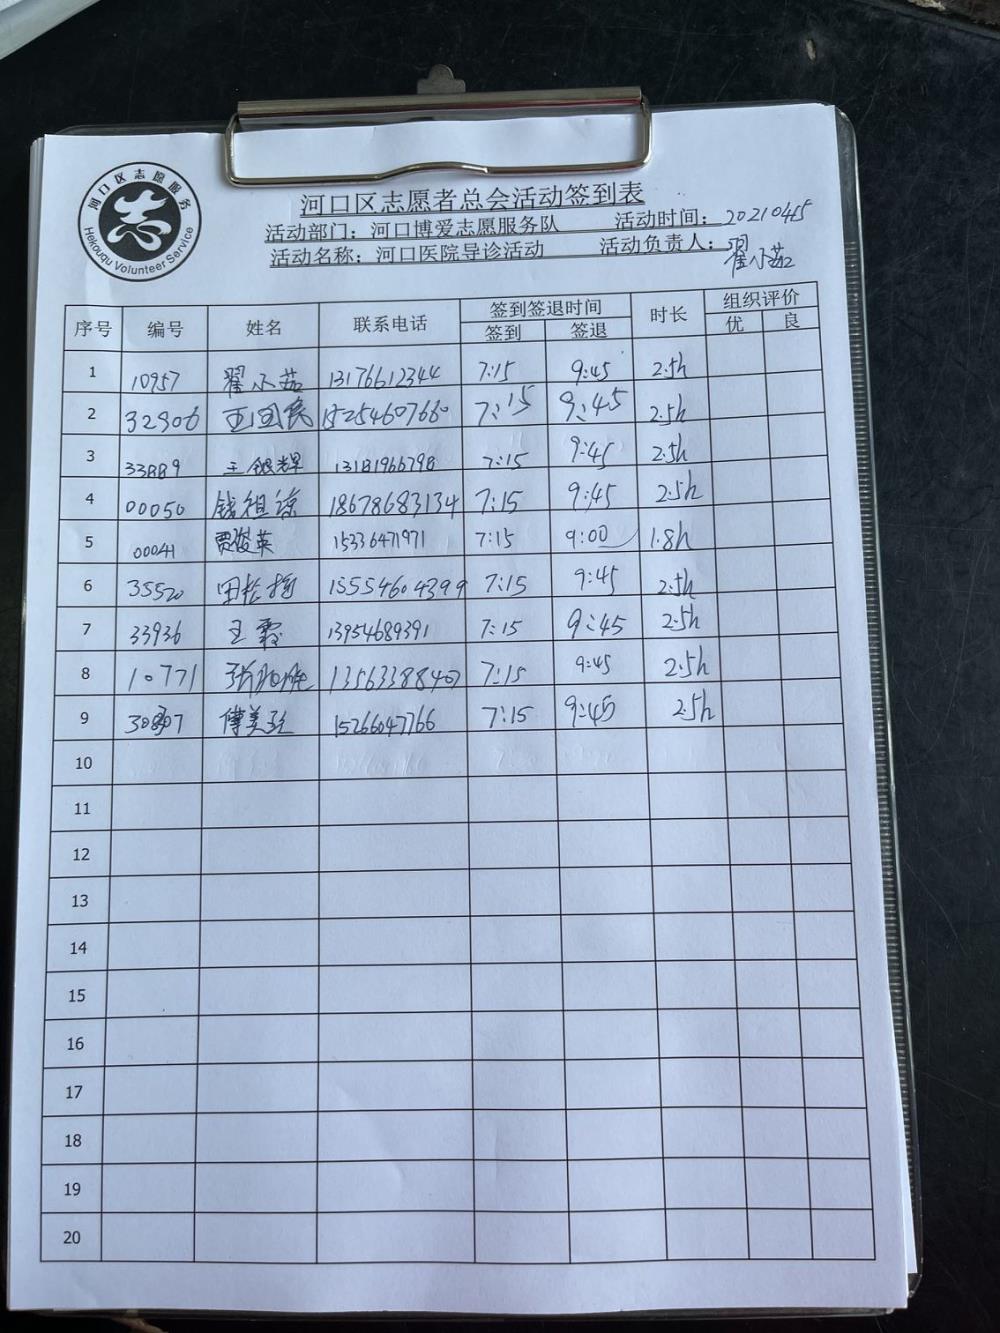 河口区志愿服务
志
Hekouqu Volunteer Service
河口区志愿者总会活动签到表
活动部门：河口博爱志愿服务队 活动时间：20210415
活动名称：河口医院导诊活动 活动负责人：翟小茹
序号 编号 姓名 联系电话 签到签退时间 时长 组织评价
签到 签退 优 良
1 10957 翟小茹 13176612344 7:15 9:45 2.5h
2 32906 7:15 9:45 2.5h
3 33889 王银辉 13181966798 7:15 9:45 2.5h
4 00050 钱祖谅 18678683134 7:15 9:45 2.5h
5 00041 贾俊英 15336471971 7:15 9:00 1.8h
6 35520 15554604399 7:15 9:45 2.5h
7 33936 王霞 13954689391 7:15 9:45 2.5h
8 10771 7:15 9:45 2.5h
9 15266047766 7:15 9:45 2.5h
10
11
12
13
14
15
16
17
18
19
20